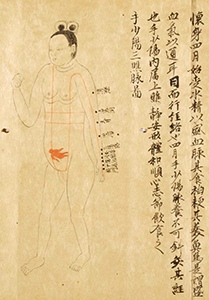 懷身四月始受水精以盛血脉其食稻粳其羹魚鴈是謂盛
血氣以通耳目而行經絡四月手少陽脉養不可針灸其經
也手少陽內屬上膲靜安形體和順心志節飲食之
手少陽三膲脉圖